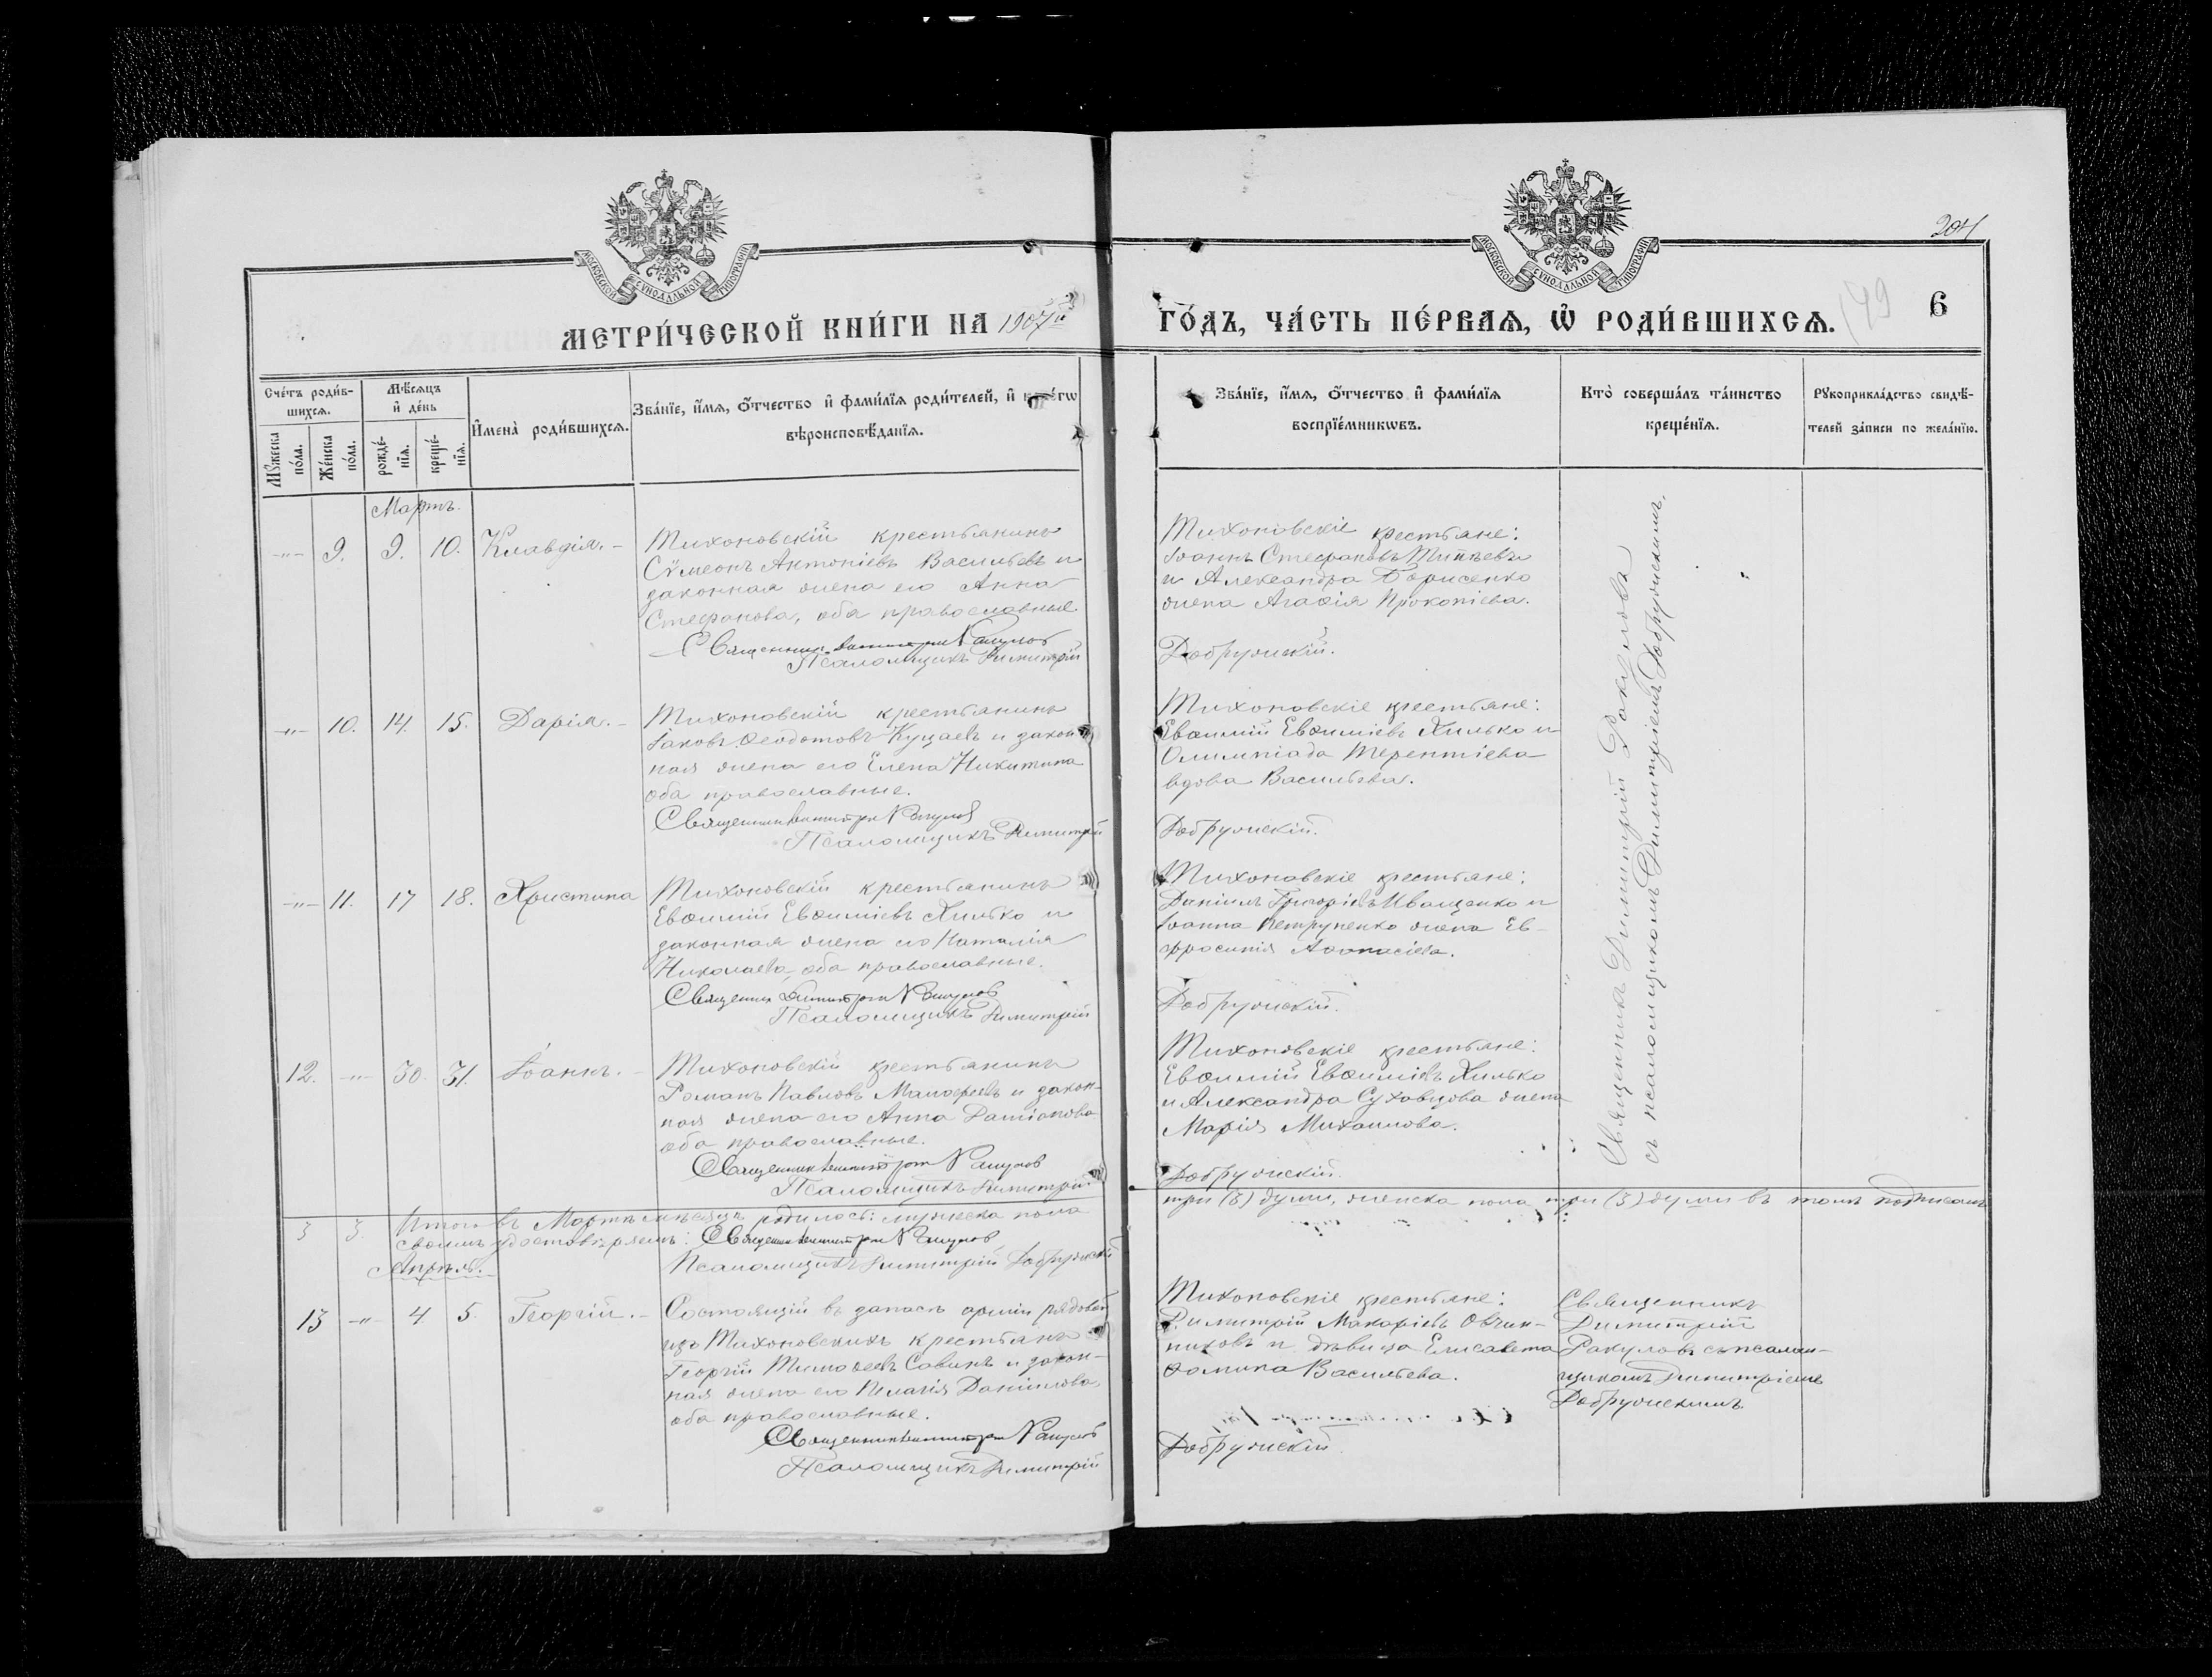 МОСКОВСКОЙ СУНОДАЛЬНОЙ ТИПОГРАФІИ
МОСКОВСКОЙ СУНОДАЛЬНОЙ ТИПОГРАФІИ
204
МЕТРИ́ЧЕСКОЙ КНИ́ГИ НА 1907й
ГО́ДЪ, ЧА́СТЬ ПЕ́РВАѦ, Ѡ҆ РОДИ́ВШИХСѦ.
149
6
Сче́тъ роди́в-
шихсѧ.
Мꙋ́жеска
по́ла.
Же́нска
по́ла.
Мѣ́сѧцъ
и҆ де́нь
рожде́-
нїѧ.
креще́-
нїѧ.
И҆мена̀ роди́вшихсѧ.
Зва́нїе, и҆́мѧ, ѻ҆́тчество и҆ фами́лїѧ роди́телей, и҆
вѣроисповѣ́данїѧ.
Зва́нїе, и҆́мѧ, ѻ҆́тчество и҆ фами́лїѧ
воспрїе́мникѡвъ.
Кто̀ соверша́лъ та́инство
креще́нїѧ.
Рꙋкоприкла́дство свидѣ́-
телей за́писи по жела́нїю.
Мартъ.
-"- 9. 9. 10. Клавдія. -
Тихоновскій крестьянинъ
Сѵмеонъ Антоніевъ Васильевъ и
законная жена его Анна
Стефанова, оба православные.
Священникъ Димитрій Ракулов
Псаломщикъ Димитрій
Тихоновскіе крестьяне:
Іоаннъ Стефановъ
и Александра Борисенко
жена Агаѳія Прокопіева.
Добружскій.
-"- 10. 14. 15. Дарія. -
Тихоновскій крестьянинъ
Іаковъ Ѳеодотовъ Куцаевъ и закон
ная жена его Елена Никитина
оба православные.
Священник Димитрій Ракулов
Псаломщикъ Димитрій
Тихоновскіе крестьяне:
Евѳимій Евѳиміевъ Хилько и
Олимпіада Терентіева
вдова Васильева.
Добружскій.
-"- 11. 17 18. Христина
Тихоновскій крестьянинъ
Евѳимій Евѳиміевъ Хилько и
законная жена его Наталія
Николаева, оба православные.
Священник Димитрій Ракулов
Псаломщикъ Димитрій
Тихоновскіе крестьяне:
Даніилъ Григоріевъ Иващенко и
Іоанна Петруненко жена Ев-
фросинія Аѳанасіева.
Добружскій.
12. -"- 30. 31. Іоаннъ. -
Тихоновскій крестьянинъ
Романъ Павловъ Малофеевъ и закон-
ная жена его Анна Даміанова
оба православные.
Священник Димитрій Ракулов
Псаломщикъ Димитрій
Тихоновскіе крестьяне:
Евѳимій Евѳиміевъ Хилько
и Александра Суховцова жена
Марія Михаилова.
Добружскій.
Священникъ Димитрій Ракулова
съ псаломщикомъ Димитріемъ Добружскимъ.
3 3. Итого въ Мартѣ мѣсяцѣ родилось: мужеска пола
три (3) души, женска пола три (3) души въ томъ подписомъ
своимъ удостовѣряемъ: Священник Димитрій Ракулов
Псаломщикъ Димитрій Добружскій
Апрѣль.
13 -"- 4. 5. Георгій. -
Состоящій въ запасѣ арміи рядовой
изъ Тихоновскихъ крестьянъ
Георгій Тимоѳеевъ Савинъ и закон-
ная жена его Пелагія Даніилова,
оба православные.
Священник Димитрій Ракулов
Псаломщикъ Димитрій
Тихоновскіе крестьяне:
Димитрій Макаріевъ Овчин-
никовъ и дѣвица Елисавета
Ѳомина Васильева.
Добружскій
Священникъ
Димитрій
Ракуловъ съ псалом-
щикомъ Димитріемъ
Добружскимъ.